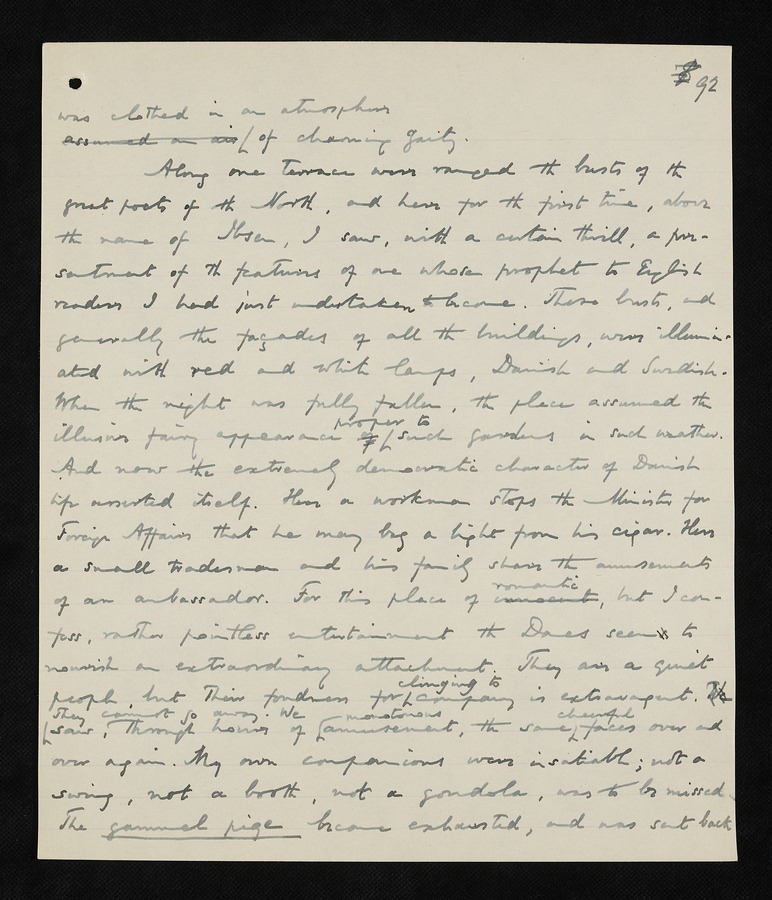 92
was clothed in an atmosphere
assumed an air of charming gaity.
Along one terrace were ranged the busts of the
great poets of the North, and here for the first time, above
the name of Ibsen, I saw, with a certain thrill, a pre-
sentment of the features of one whose prophet to English
readers I had just undertaken to become. These busts, and
generally the façades of all the buildings, were illumin-
ated with red and white lamps, Danish and Swedish.
When the night was fully fallen, the place assumed the
proper to
illusive fairy appearance of such gardens in such weather.
And now the extremely democratic character of Danish
life asserted itself. Here a workman stops the Minister for
Foreign Affairs that he may beg a light from his cigar. Here
a small tradesman and his family share the amusements
romantic
of an ambassador. For this place of innocent, but I con-
fess, rather pointless entertainment the Danes seem to
nourish an extraordinary attachment. They are a quiet
clinging to
people, but their fondness for company is extravagant. We
they cannot go away. We monotonous cheerful
saw, through hours of amusement, the same faces over and
over again. My own companions were insatiable; not a
swing, not a booth, not a gondola, was to be missed.
The gammel pige became exhausted, and was sent back